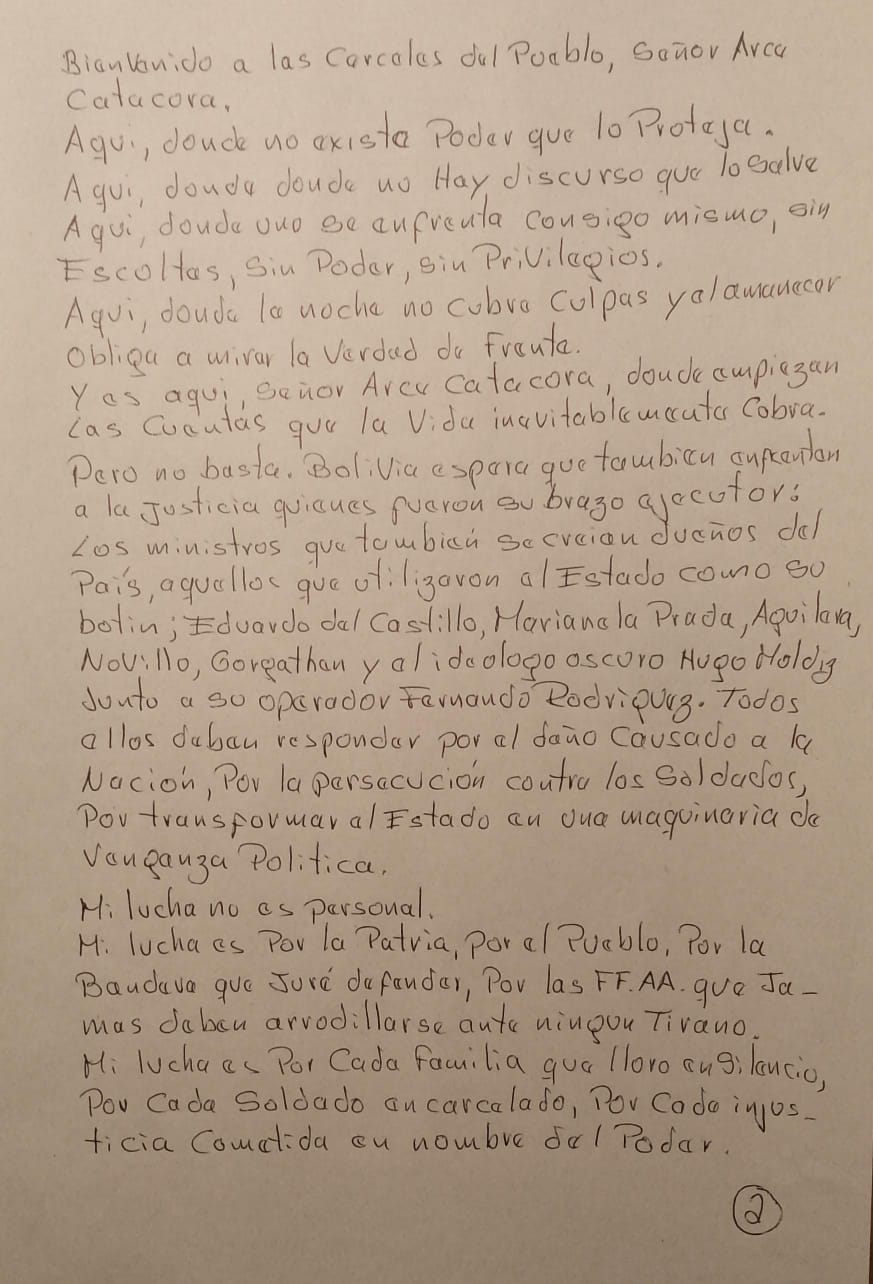 Bienvenido a las Carceles del Pueblo, Señor Arce
Catacora.
Aqui, donde no existe Poder que lo Proteja.
Aqui, donde donde no Hay discurso que lo salve
Aqui, donde uno se enfrenta consigo mismo, sin
Escoltas, Sin Poder, sin Privilegios.
Aqui, donde la noche no cubre Culpas y al amanecer
Obliga a mirar la Verdad de Frente.
Y es aqui, señor Arce Catacora, donde empiezan
Las Cuentas que la Vida inevitablemente Cobra.
Pero no basta. Bolivia espera que tambien enfrentan
a la Justicia quienes fueron su brazo ejecutor:
Los ministros que tambien se creian dueños del
País, aquellos que utilizaron al Estado como su
botin; Eduardo del Castillo, Marianela Prada, Aguilera,
Novillo, Gorgathan y al ideologo oscuro Hugo Moldiz
Junto a su operador Fernando Rodriguez. Todos
ellos deben responder por el daño Causado a la
Nación, Por la persecución contra los Soldados,
Por transformar al Estado en una maquinaria de
Venganza Politica.
Mi lucha no es personal.
Mi lucha es Por la Patria, Por el Pueblo, Por la
Bandera que Juré defender, Por las FF.AA. que Ja-
mas deben arrodillarse ante ningun Tirano.
Mi lucha es Por Cada familia que lloro en Silencio,
Por Cada Soldado encarcelado, Por Cada injus-
ticia Cometida en nombre del Poder.
2